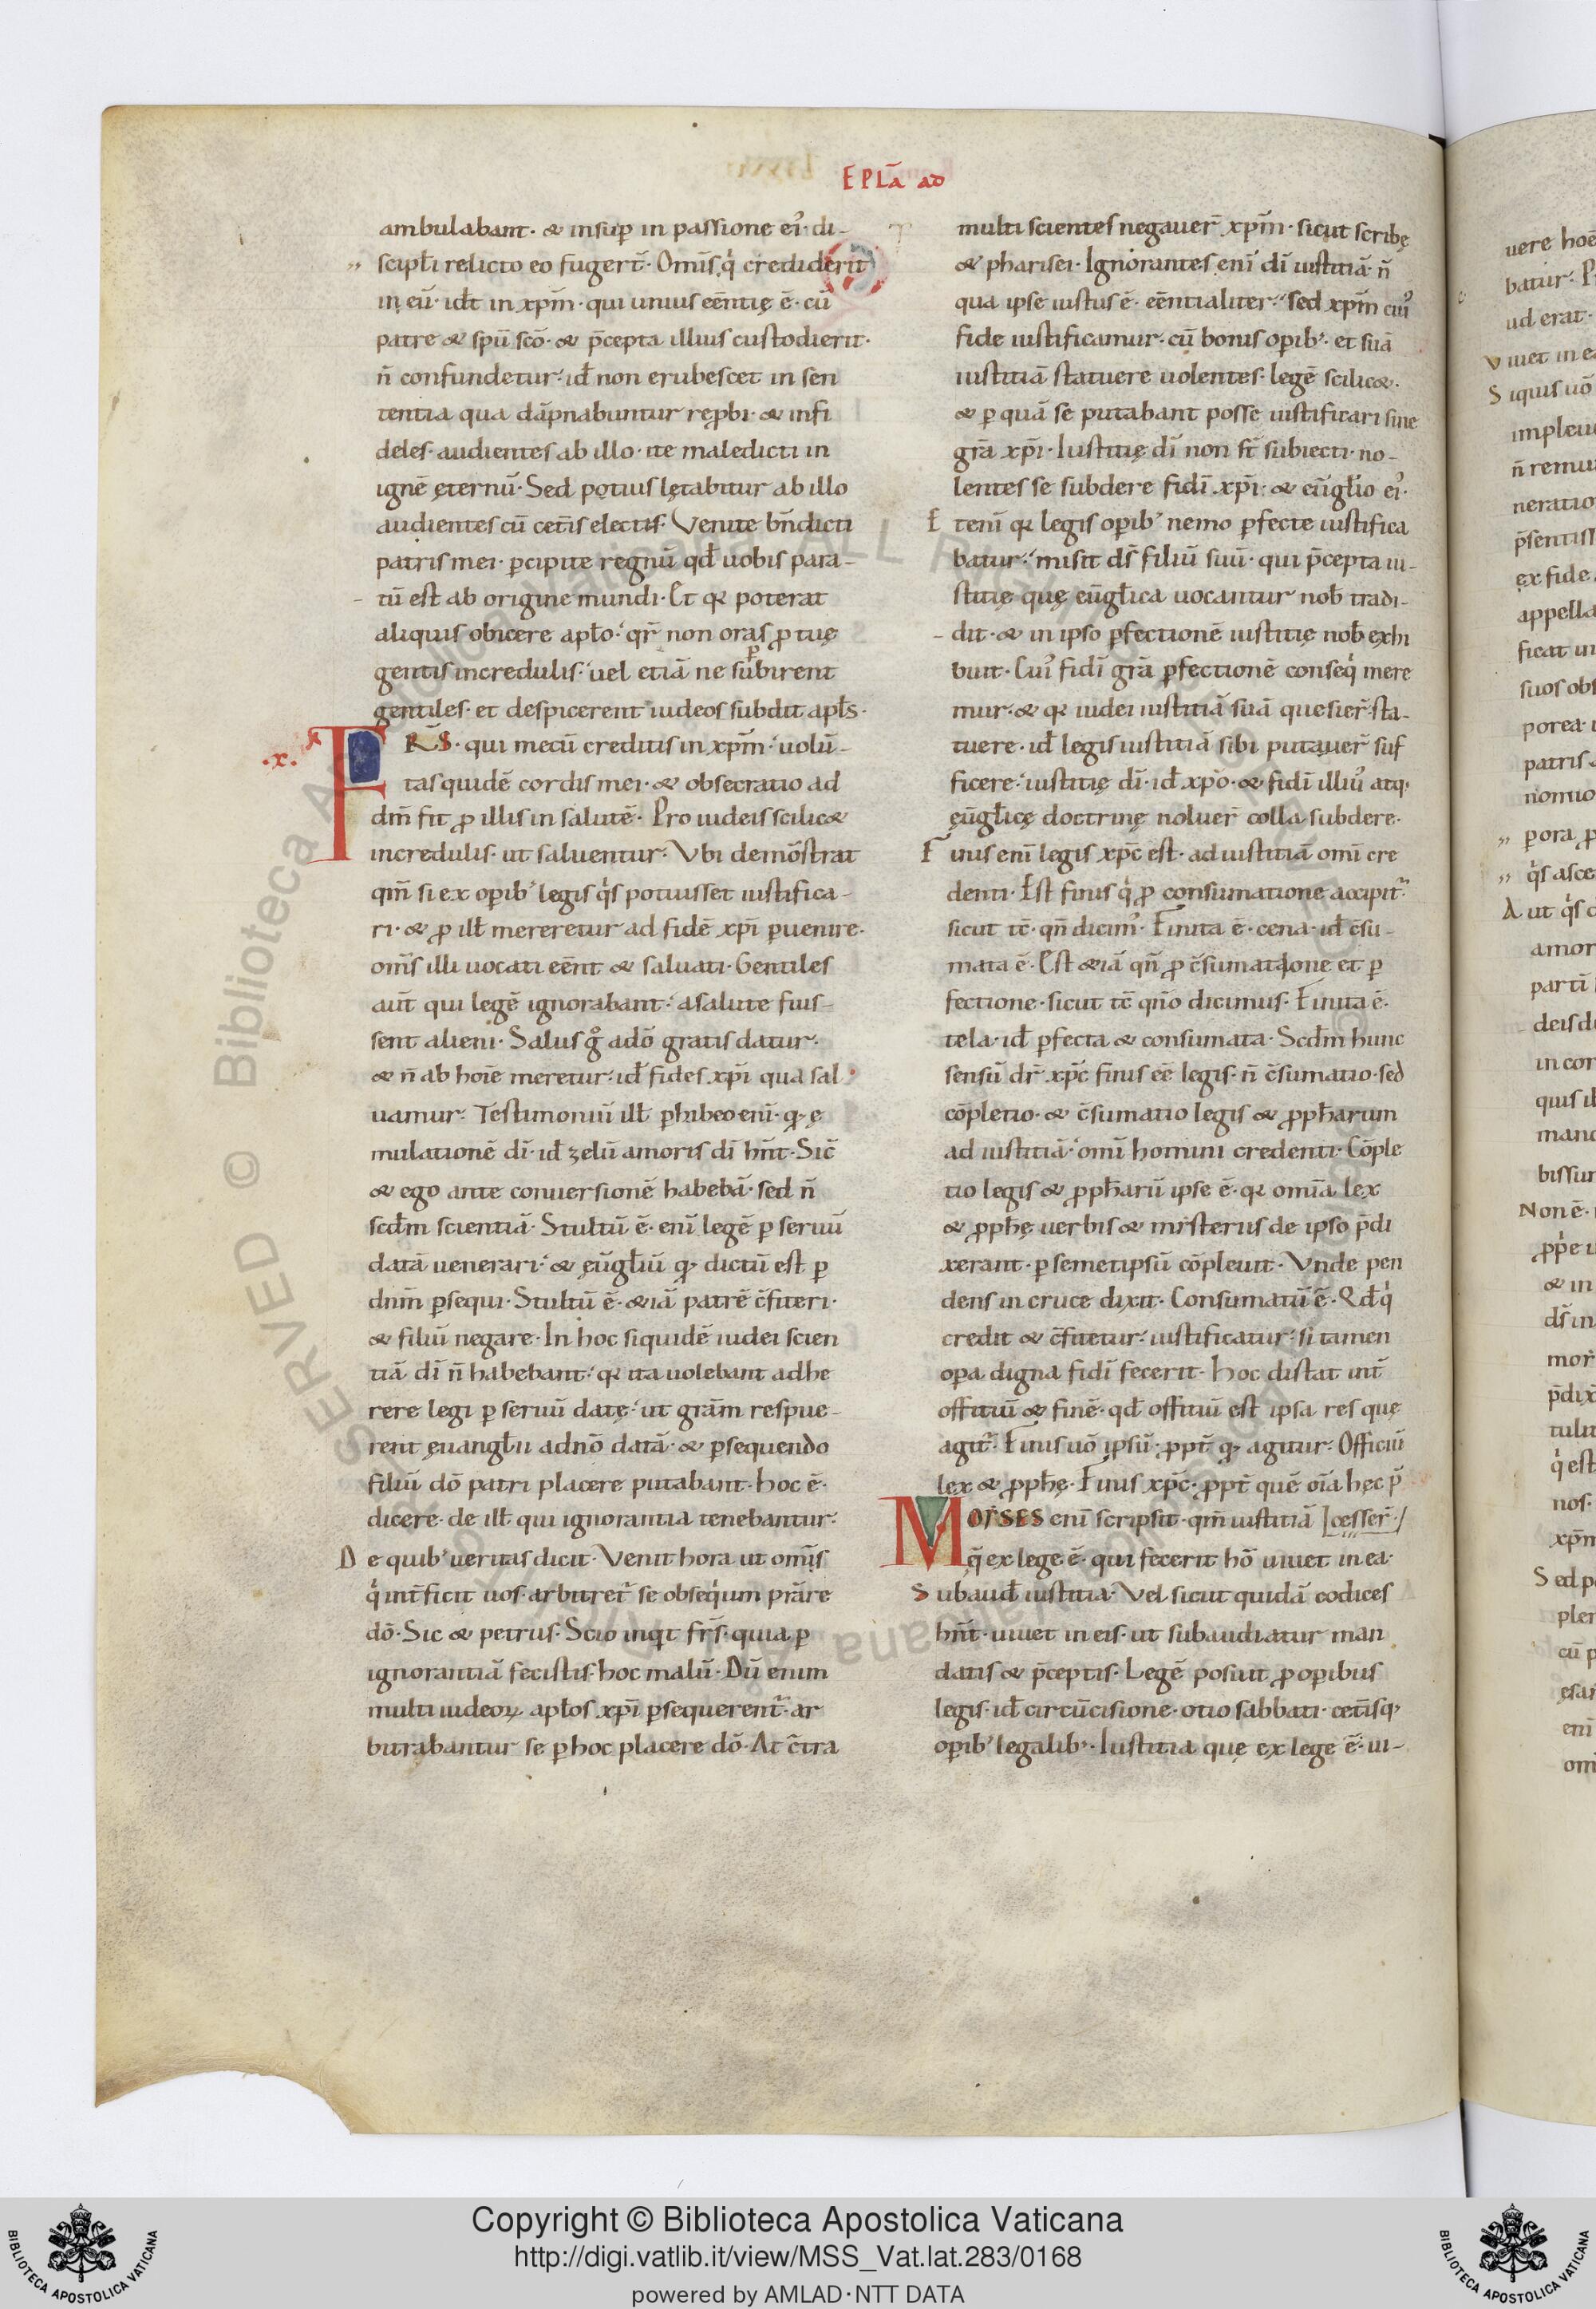 EPLā ad
ambulabant· & insup̲ in passione ei᾿· di-
scipl̄i relicto eo fuger̄t· Om̄is q̇ crediderit
in eū· id ē in xp̄m· qui unius eēntię ē· cū
patre & spū scō· & p̄cepta illius custodierit·
n̄ confundetur· id̄ non erubescet in sen
tentia qua dāpnabuntur rep̲bi· & infi
deles· audientes ab illo· ite maledicti in
ignē ęternū· Sed potius lętabitur ab illo
audientes cū cet̄is electis· Venite bn̄dicti
patris mei· p̲cipite regnū qd̄ uobis para-
tū est ab origine mundi· Et qr poterat
aliquis obicere apl̄o· qr̄ non oras ꝓ tuę
gentis incredulis· uel etiā ne sup̲birent
gentiles· et despicerent iudeos subdit apl̄s·
·x· FRS̄· qui mecū creditis in xp̄m· uolū-
tas quidē cordis mei· & obsecratio ad
dm̄ fit ꝓ illis in salutē· Pro iudeis scilic&
incredulis· ut saluentur· Vbi demōstrat
qm̄ si ex op̲ib᾿ legis q̇s potuisset iustifica-
ri· & ꝓ ill̄ mereretur ad fidē xp̄i p̲uenire·
om̄s illi uocati eēnt & saluati· Gentiles
aūt qui legē ignorabant· a salute fuis-
sent alieni· Salus g° adō gratis datur·
& n̄ ab hoīe meretur· id̄ fides xp̄i qua sal
uamur· Testimoniū ill̄ p̲hibeo enī· qꝫ ę
mulationē dī· id̄ zelū amoris dī hn̄t· Sic̄
& ego ante conuersionē habebā· sed n̄
scd̄m scientiā· Stultū ē· enī legē p̲ seruū
datā uenerari· & ęūgl̄iū qꝫ dictū est p̲
dn̄m p̲sequi· Stultū ē· &iā patrē c̄fiteri·
& filiū negare· In hoc siquidē iudei scien
tiā dī n̄ habebant· qr ita uolebant adhe
rere legi p̲ seruū datę· ut grām respue-
rent ęuangl̄ii adnō datā· & p̲sequendo
filiū dō patri placere putabant· hoc ē·
dicere· de ill̄ qui ignorantia tenebantur·
De quib᾿ ueritas dicit· Venit hora ut om̄is
q̇ int̄ficit uos· arbitret̄ se obseq̇um p̄rāre
dō· Sic & petrus· Scio inqt fr̄s· quia p̲
ignorantiā fecistis· hoc malū· Dū enim
multi iudeoꝝ apl̄os xp̄i p̲sequerent̄· ar
bitrabantur se p̲ hoc placere dō· At c̄tra
multi scientes negauer̄ xp̄m· sicut scribę
& pharisei· Ignorantes enī dī iustitiā· n̄
qua ipse iustus ē· eēntialiter· sed xp̄m cui᾿
fide iustificamur· cū bonis op̲ib᾿· et suā
iustitiā statuere uolentes· legē scilic&·
& p̲ quā se putabant posse iustificari sine
grā xp̄i· Iustitię dī non st̄ subiecti· no-
lentes se subdere fidī xp̄i· & eūgl̄io ei᾿·
Etenī qr legis op̲ib᾿ nemo p̲fecte iustifica
batur· misit ds̄ filiū suū· qui p̄cepta iu-
stitię quę eūgl̄ica uocantur nob̄ tradi-
dit· & in ipso p̲fectionē iustitię nob̄ exhi
buit· Cui᾿ fidī grā p̲fectionē conseq̇ mere
mur· & qr iudei iustitiā suā quesier̄· sta-
tuere· id̄ legis iustitiā sibi putauer̄ suf
ficere· iustitię dī· id̄ xp̄o· & fidī illiu᾿ atq·
ęūgl̄icę doctrinę noluer̄ colla subdere·
Finis enī legis xp̄c est· ad iustitiā omī cre
denti· Est finis q̇ ꝓ consumatione accipit̄·
sicut tc̄· qn̄ dicim᾿· Finita ē· cena· id̄ c̄su-
mata ē· Est &iā qn̄ ꝓ c̄sumatione et p̲
fectione· sicut tc̄ qn̄o dicimus· Finita ē·
tela· id̄ p̲fecta & consumata· Scd̄m hunc
sensū dr̄ xp̄c finis eē legis· n̄ c̄sumatio· sed
cōpletio· & c̄sumatio legis & ꝓph̄arum
ad iustitiā· omī homini credenti· Cōple
tio legis & ꝓph̄arū ipse ē· qr omīa lex
& ꝓph̄ę uerbis & misteriis de ipso p̄di
xerant· p̲ semetipsū cōpleuit· Vnde pen
dens in cruce dixit· Consumatū ē· Qd̄ q̇
credit & c̄fitetur· iustificatur· si tamen
op̲a digna fidī fecerit· hoc distat int̄
offitiū & finē· qd̄ offitiū est ipsa res quę
agit̄· Finis uō ipsū· ꝓpt̄ qꝫ agitur· Officiū
lex & ꝓph̄ę· Finis xp̄c· ꝓpt̄ quē oīa hęc p̄
MOISES enī scripsit· qm̄ iustitiā [cesser̄·/
q̄ ex lege ē· qui fecerit hō uiuet in ea·
Subaud̄ iustitia· Vel sicut quidā codices
hn̄t· uiuet in eis· ut subaudiatur man
datis & p̄ceptis· Legē posuit ꝓ op̲ibus
legis· id̄ circūcisione· otio sabbati· cet̄isq·
op̲ib᾿ legalib᾿· Iustitia quę ex lege ē· ui-
Copyright © Biblioteca Apostolica Vaticana
http://digi.vatlib.it/view/MSS_Vat.lat.283/0168
powered by AMLAD·NTT DATA
BIBLIOTECA APOSTOLICA VATICANA
BIBLIOTECA APOSTOLICA VATICANA